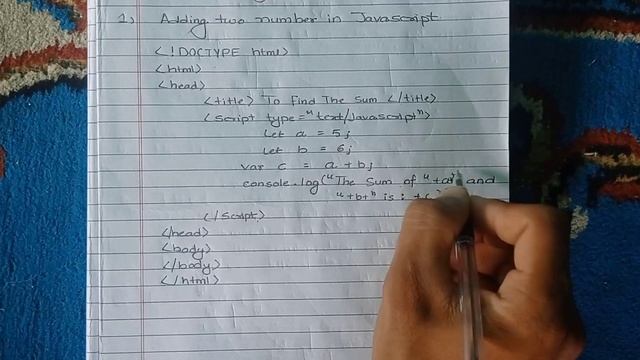 1) Adding two number in Javascript
<!DOCTYPE html>
<html>
<head>
<title> To find The Sum </title>
<script type="text/Javascript">
Let a = 5;
Let b = 6;
var c = a + b;
console.log("The Sum of "+a+" and
"+b+" is : +c
</script>
</head>
<body>
</body>
</html>